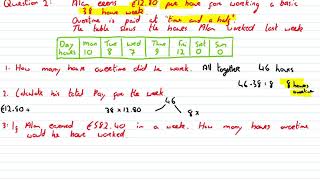 Question 2: Alan earns £12.80 per hour for working a basic
38 hour week.
Overtime is paid at "time and a half".
The table shows the hours Alan worked last week
Day Mon Tue Wed Thu Fri Sat Sun
hours 10 9 7 8 12 0 0
1. How many hours overtime did he work. All together 46 hours
46-38 = 8 hours overtime
2. Calculate his total Pay for the week.
46
£12.80 × 38 × 12.80 8 x
3. If Alan earned £582.40 in a week. How many hours overtime
would he have worked